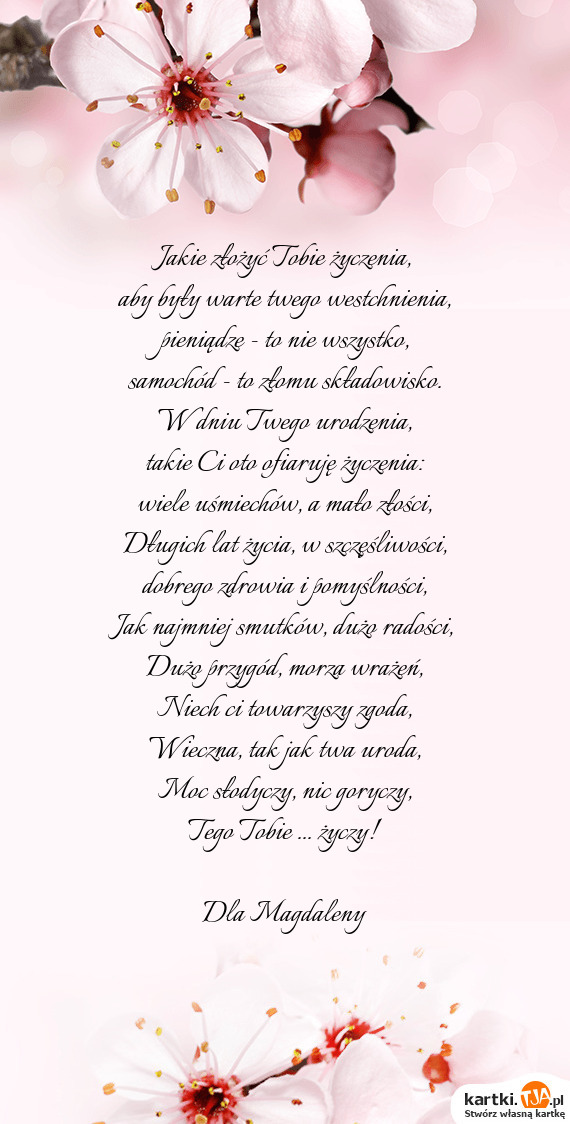 Jakie złożyć Tobie życzenia,
aby były warte twego westchnienia,
pieniądze - to nie wszystko,
samochód - to złomu składowisko.
W dniu Twego urodzenia,
takie Ci oto ofiaruję życzenia:
wiele uśmiechów, a mało złości,
Długich lat życia, w szczęśliwości,
dobrego zdrowia i pomyślności,
Jak najmniej smutków, dużo radości,
Dużo przygód, morza wrażeń,
Niech ci towarzyszy zgoda,
Wieczna, tak jak twa uroda,
Moc słodyczy, nic goryczy,
Tego Tobie ... życzy!
Dla Magdaleny
kartki.TJA.pl
Stwórz własną kartkę